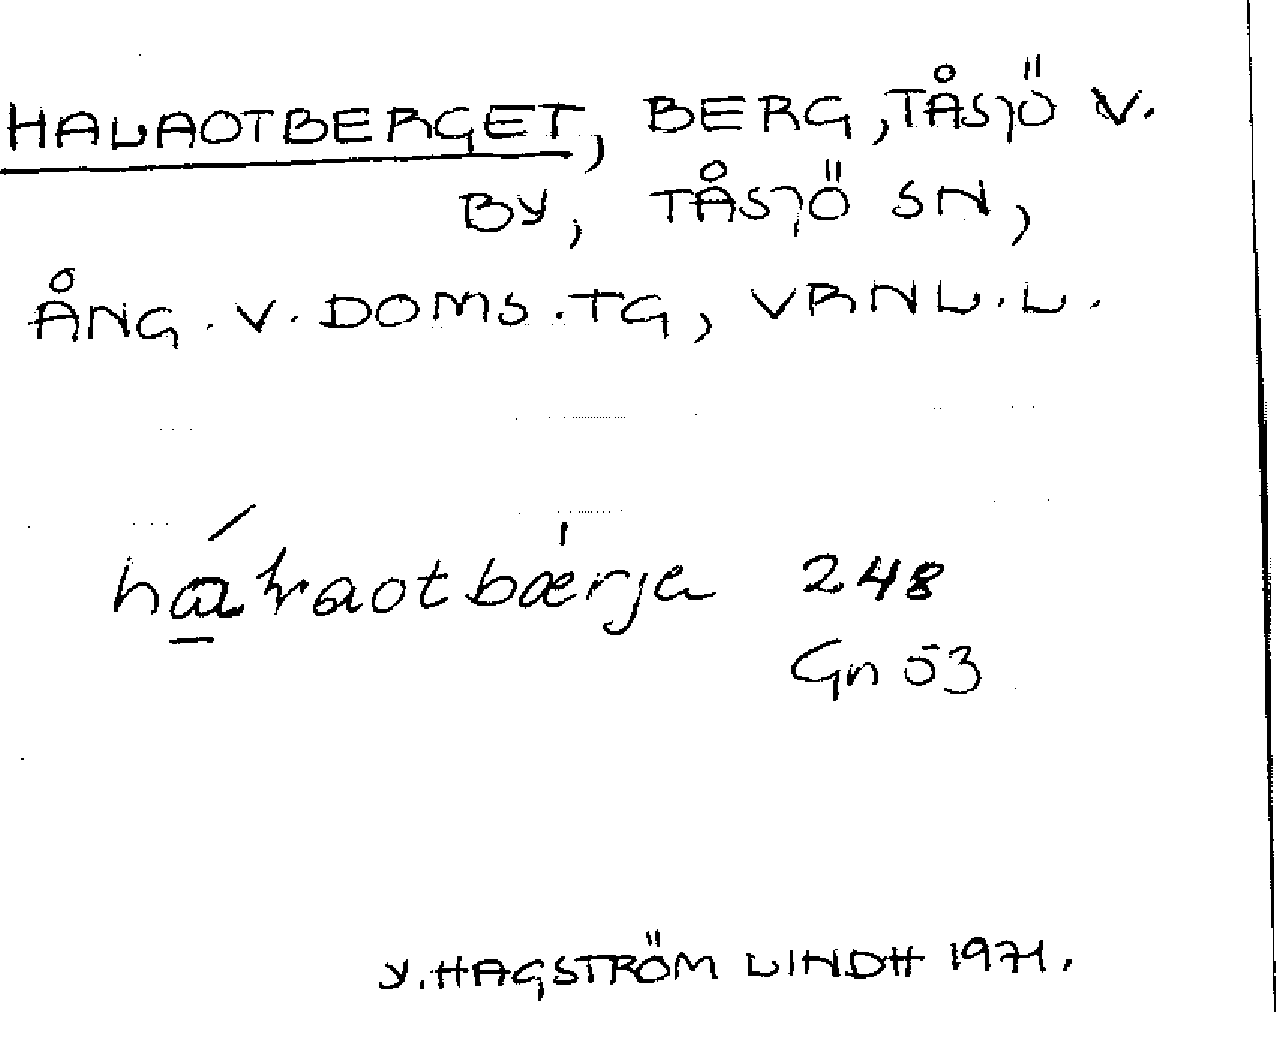 HALAOTBERGET, BERG, TÅSJÖ V.
BY, TÅSJÖ SN,
ÅNG. V. DOMS.TG, VRNL.L.
háƚraotbærja 248
Gn 53
Y. HAGSTRÖM LINDH 1971.